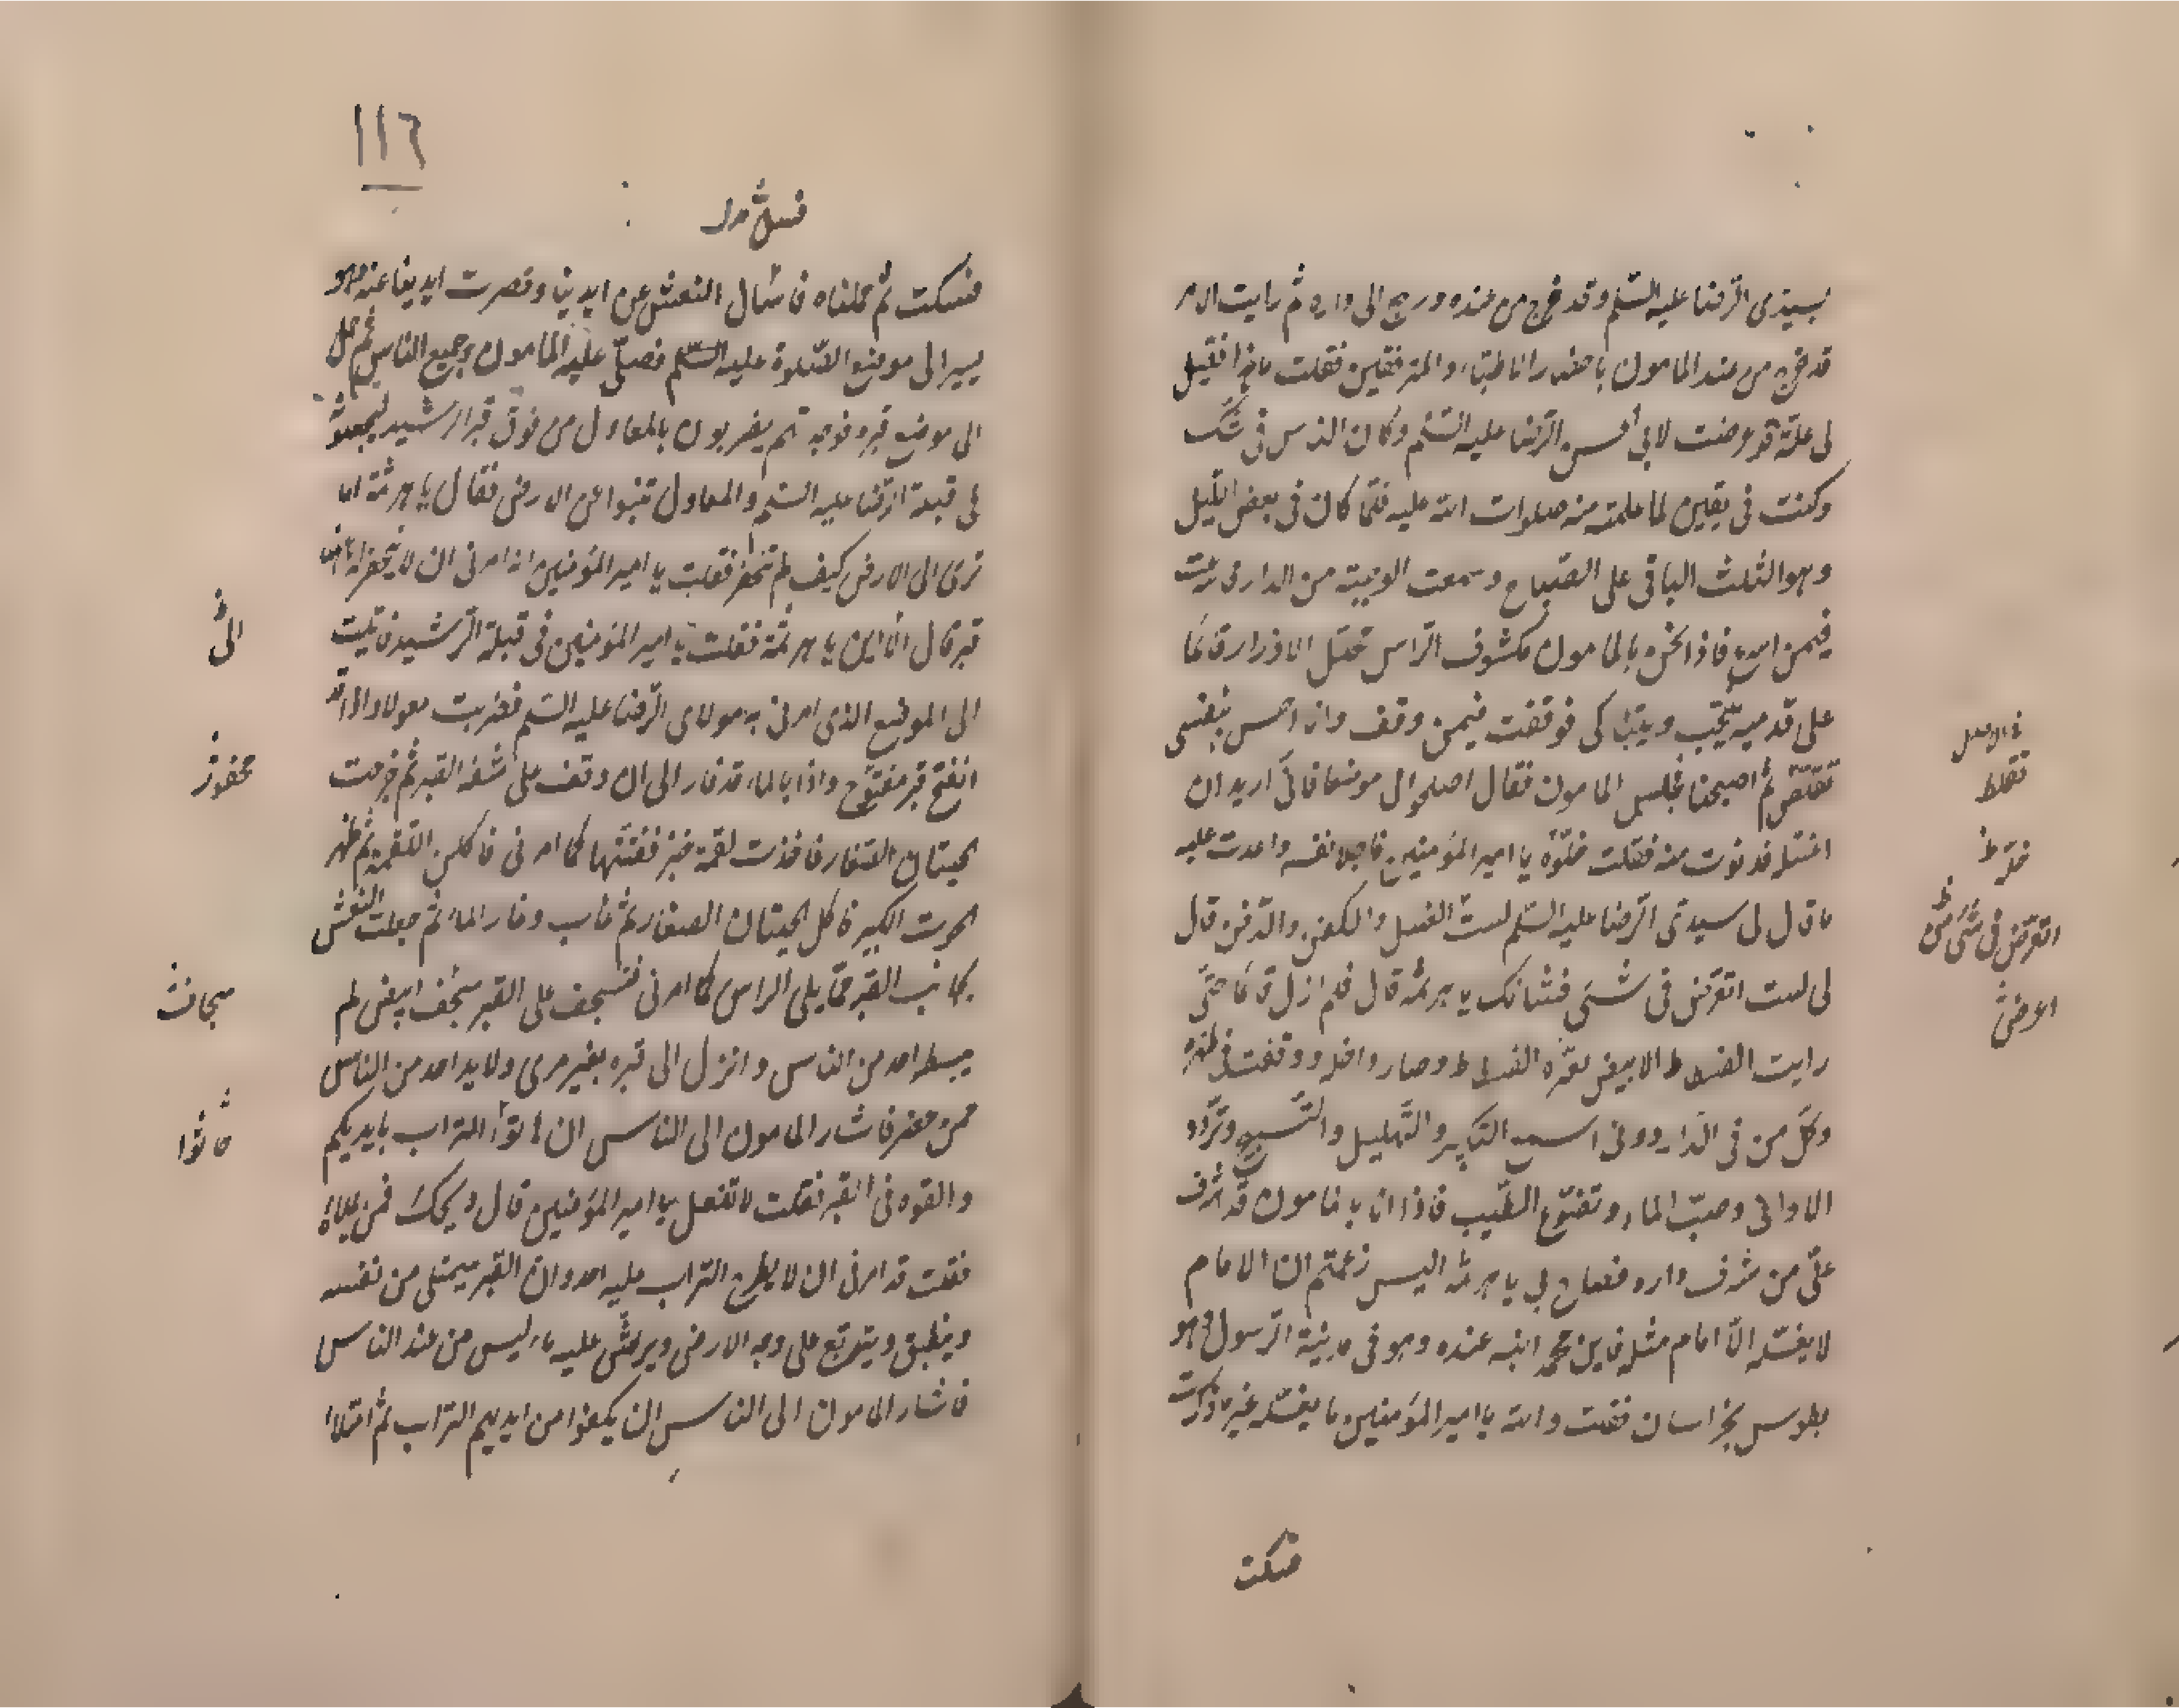 بسيدى الرضا عليه السّلم وقد خرج من عنده ورجع الى داره ثم رايت الامر
قد خرج من عند المامون باحضار الاطباء والمترفقين فقلت ما هذا فقيل
لى علة قد عرضت لابى الحسن الرضا عليه السّلم وكان الناس فى شك
وكنت فى يقين لما علمته منه صلوات الله عليه فلما كان فى بعض الليل
وهو الثلث الباقى على الصباح وسمعت الوجبة من الدار فاسرعت
فيمن اسرع فاذا نحن بالمامون مكشوف الراس محلل الازرار قائما
على قدميه ينتحب ويتباكى فوقفت فيمن وقف وانا احس بنفسى
تقتقص ثم اصبحنا فجلس المامون فقال اصلحوا لى موضعا فانى اريد ان
اغسله فدنوت منه فقلت خلوة يا امير المؤمنين فاخلا نفسه واعدت عليه
ما قال لى سيدى الرضا عليه السّلم لست الغسل والكفن والدفن قال
لى لست اتعرض فى شىء فشانك يا هرثمة قال فلم ازل قائما حتى
رايت الفسطاط الابيض الفسطاط وصار داخله ووقفت فى ظهره
وكل من فى الدار دونى اسمع التكبير والتهليل والتسبيح وتردد
الاوانى وصب الماء وتضوع الطيب فاذا انا بالمامون قد اشرف
على من شرف داره فصاح بى يا هرثمة اليس زعمتم ان الامام
لا يغسله الا امام مثله فاين محمد ابنه عنده وهو فى مدينة الرسول وهو
بطوس بخراسان فقلت والله يا امير المؤمنين ما يغسله غير ما ذكرت
فى الاصل
تقلط
اتعرض فى شى
اعرض
فسكت
١١٦
فسكت ثم حملناه فاشال النعش عن ايدينا وقصرت ايدينا عنه وهو
يسير الى موضع الصلوة عليه السّلم فصلى عليه المامون وجميع الناس ثم حمل
الى موضع قبره فوجدتهم يضربون بالمعاول من فوق قبر الرشيد ليجعلوه
فى قبلة الرضا عليه السلم والمعاول تنبوا عن الارض فقال يا هرثمة اما
ترى الى الارض كيف لم تنحفر فقلت يا امير المؤمنين انه امرنى ان لا يحفر له
قبر قال اين يا هرثمة فقلت يا امير المؤمنين فى قبلة الرشيد فاتيت
الى الموضع الذى امرنى به مولاى الرضا عليه السلم فضربت معولا واذا قد
انفتح قبر مفتوح واذا بالماء قد فار الى ان وقف على شفة القبر ثم خرجت
الحيتان الصغار فاخذت لقمة خبز ففتتها كما امرنى فاكلن اللقمة ثم ظهر
الحوت الكبير فاكل الحيتان الصغار ثم غاب وغار الماء ثم جعلت النعش
بجانب القبر مما يلى الراس كما امرنى فسجف على القبر سجف ابيض لم
يبسطه احد من الناس وانزل الى قبره بغير مرى ولا يد احد من الناس
ممن حضر فاشار المامون الى الناس ان هاتوا التراب بايديكم
والقوه فى القبر فقلت لا تفعل يا امير المؤمنين قال ويحك فمن يملاه
فقلت قد امرنى ان لا يطرح التراب عليه احد وان القبر يمتلى من نفسه
وينطبق ويتربع على وجه الارض ويرش عليه ماء ليس من عند الناس
فاشار المامون الى الناس ان يكفوا من ايديهم التراب ثم امتلا
الى
محفور
سجافت